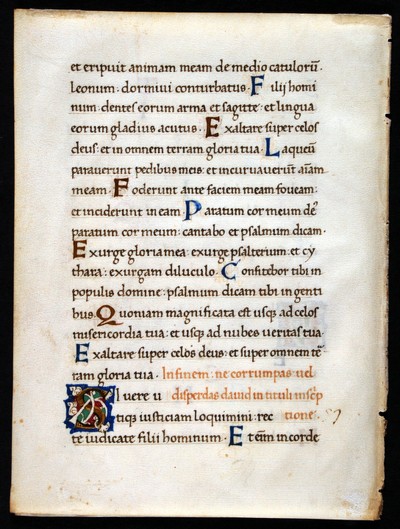 et eripuit animam meam de medio catuloru᷑
leonum: dormivi conturbatus. Filii homi
num: dentes eorum arma et sagitte: et lingua
eorum gladius acutus. Exaltare super celos
deus: et in omnem terram gloria tua. Laqueū
paraverunt pedibus meis: et incurvaverūt aīam
meam. Foderunt ante faciem meam foveam:
et inciderunt in eam. Paratum cor meum de᷒
paratum cor meum: cantabo et psalmum dicam.
Exurge gloria mea: exurge psalterium: et cy
thara: exurgam diluculo. Confitebor tibi in
populis domine: psalmum dicam tibi in genti
bus. Quoniam magnificata est usqꝫ ad celos
misericordia tua: et usqꝫ ad nubes veritas tua.
Exaltare super celos deus: et super omnem ter᷑
ram gloria tua. In finem: ne corrumpas vel
Si vere u disperdas david in tituli insc̄p
tiqꝫ iusticiam loquimini: rec tione.
te iudicate filii hominum. Eteīm in corde